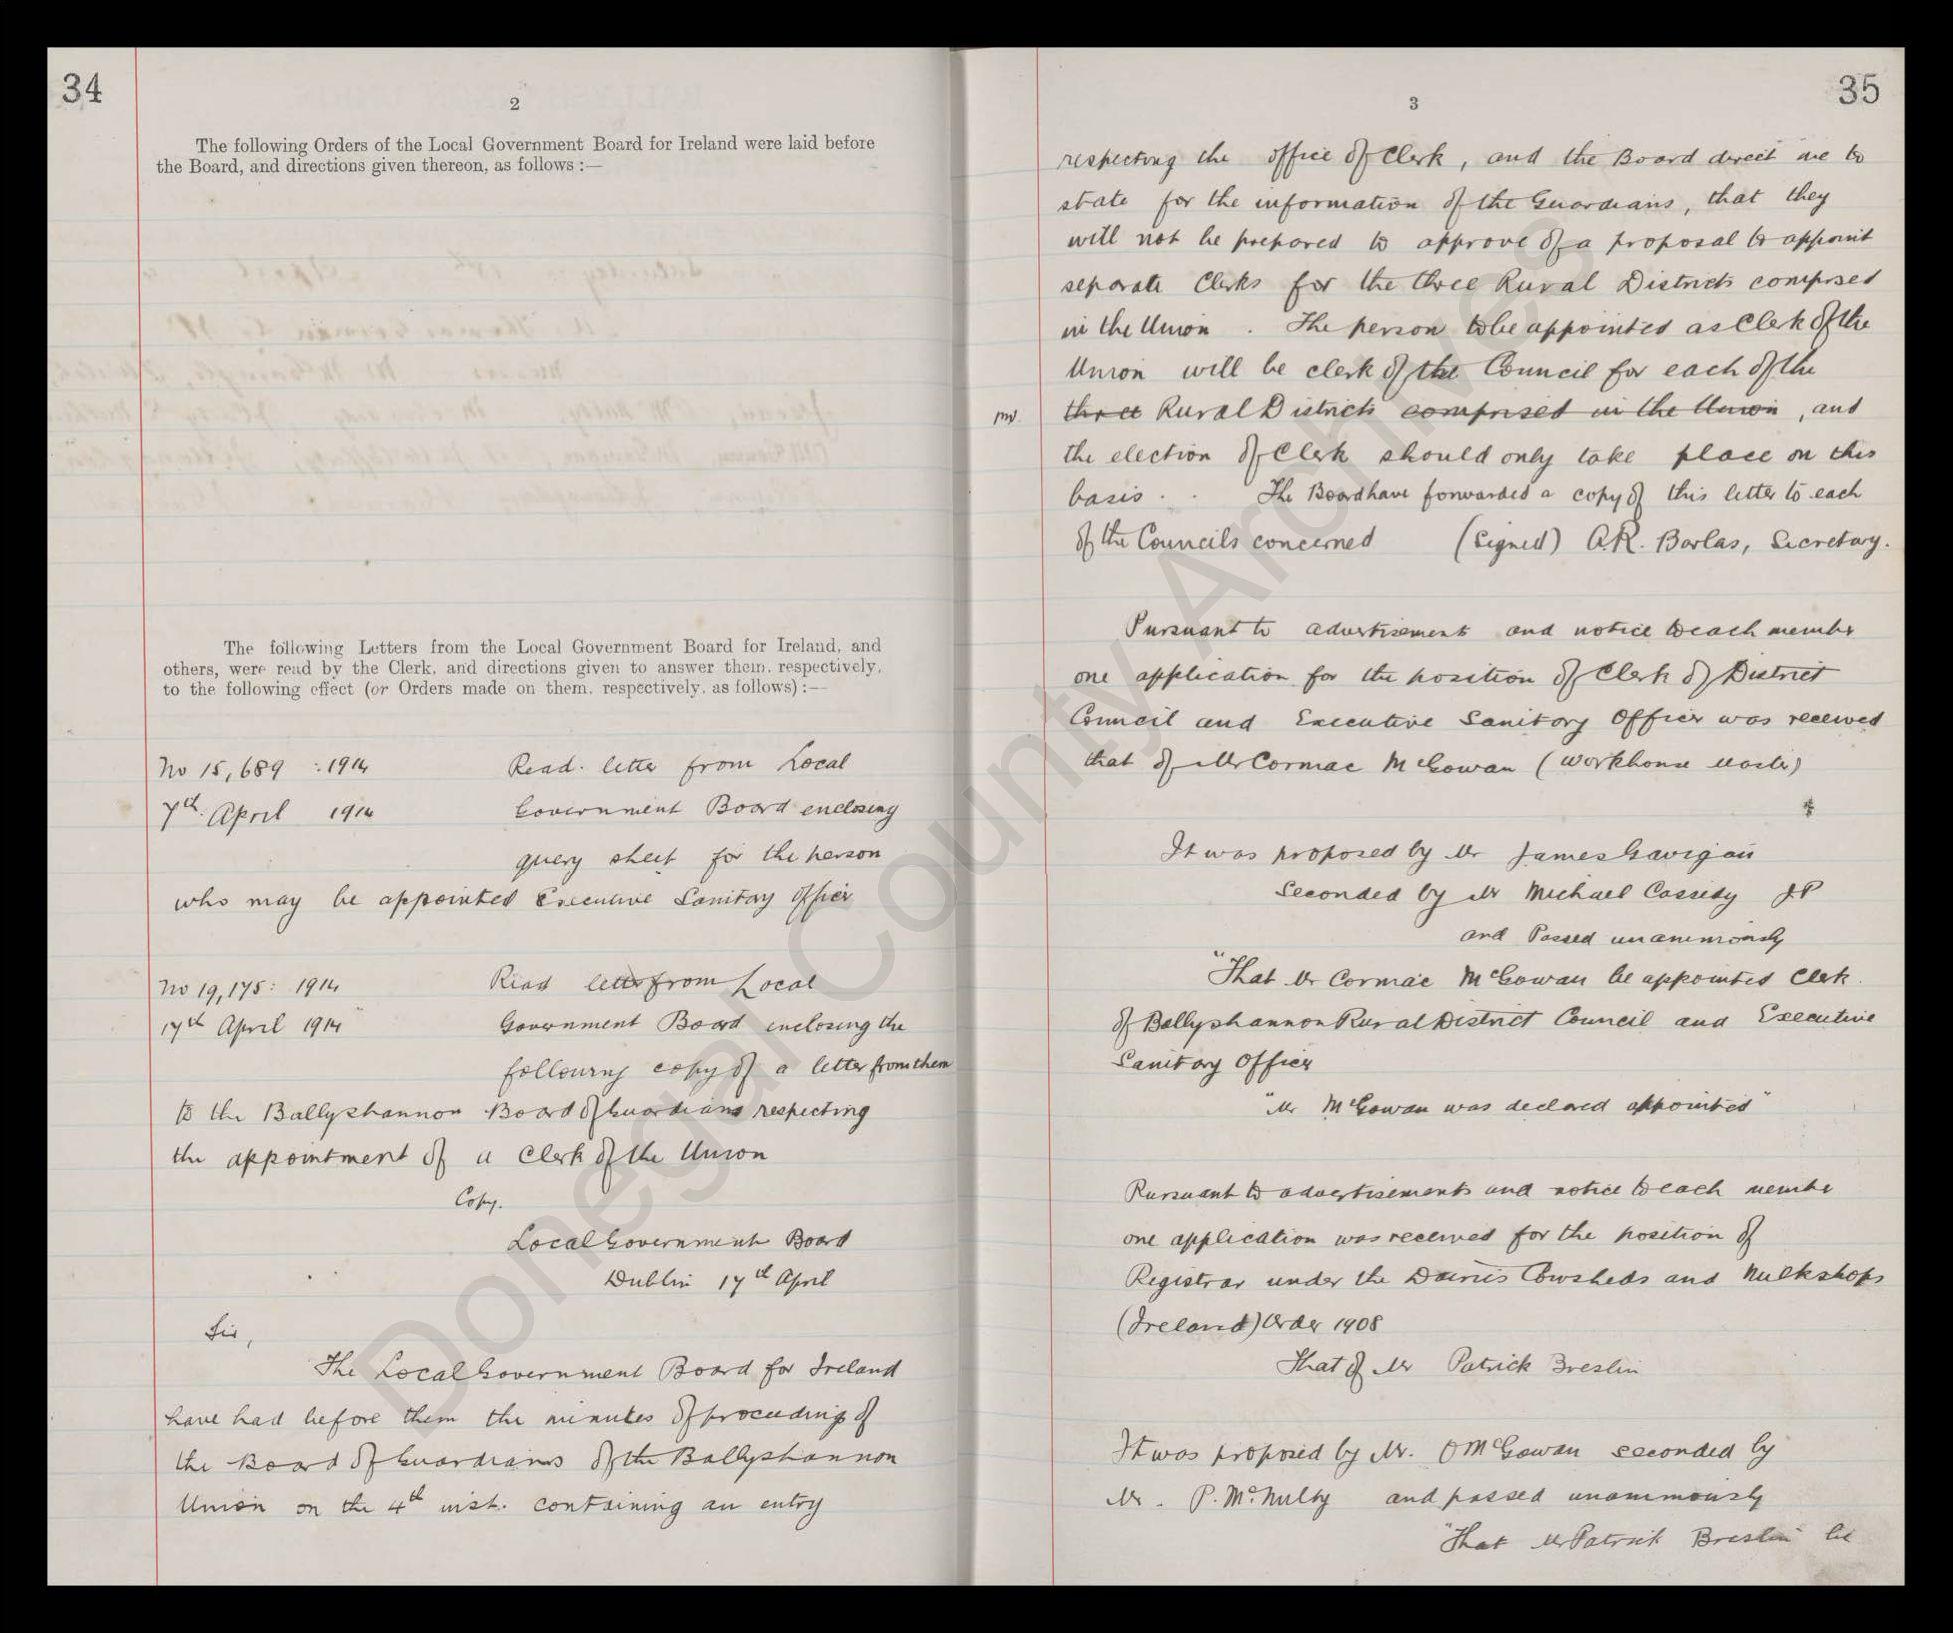 34
2
The following Orders of the Local Government Board for Ireland were laid before
the Board, and directions given thereon, as follows :—
The following Letters from the Local Government Board for Ireland, and
others, were read by the Clerk, and directions given to answer them, respectively,
to the following effect (or Orders made on them, respectively, as follows) :—
No 15,689 : 1914 Read letter from Local
7th April 1914 Government Board enclosing
query sheet for the person
who may be appointed Executive Sanitary Officer
No 19,175: 1914 Read letter from Local
17th April 1914 Government Board enclosing the
following copy of a letter from them
to the Ballyshannon Board of Guardians respecting
the appointment of a Clerk of the Union
Copy.
Local Government Board
Dublin 17th April
Sir,
The Local Government Board for Ireland
have had before them the minutes of proceedings of
the Board of Guardians of the Ballyshannon
Union on the 4th inst. containing an entry
35
3
respecting the office of Clerk, and the Board direct me to
state for the information of the Guardians, that they
will not be prepared to approve of a proposal to appoint
separate Clerks for the three Rural Districts comprised
in the Union . The person to be appointed as Clerk of the
Union will be clerk of the Council for each of the
three Rural Districts comprised in the Union , and
the election of Clerk should only take place on this
basis . . The Board have forwarded a copy of this letter to each
of the Councils concerned (Signed) A.R. Barlas, Secretary.
Pursuant to advertisement and notice to each member
one application for the position of Clerk of District
Council and Executive Sanitary Officer was received
that of Mr Cormac McGowan (Workhouse Master)
It was proposed by Mr James Gavigan
Seconded by Mr Michael Cassidy J.P
and Passed unanimously
"That Mr Cormac McGowan be appointed Clerk
of Ballyshannon Rural District Council and Executive
Sanitary Officer
"Mr McGowan was declared appointed"
Pursuant to advertisements and notice to each member
one application was received for the position of
Registrar under the Dairies Cowsheds and Milkshops
(Ireland) Order 1908
That of Mr Patrick Breslin
It was proposed by Mr. O McGowan seconded by
Mr. P. McNulty and passed unanimously
"That Mr Patrick Breslin be
Donegal County Archives